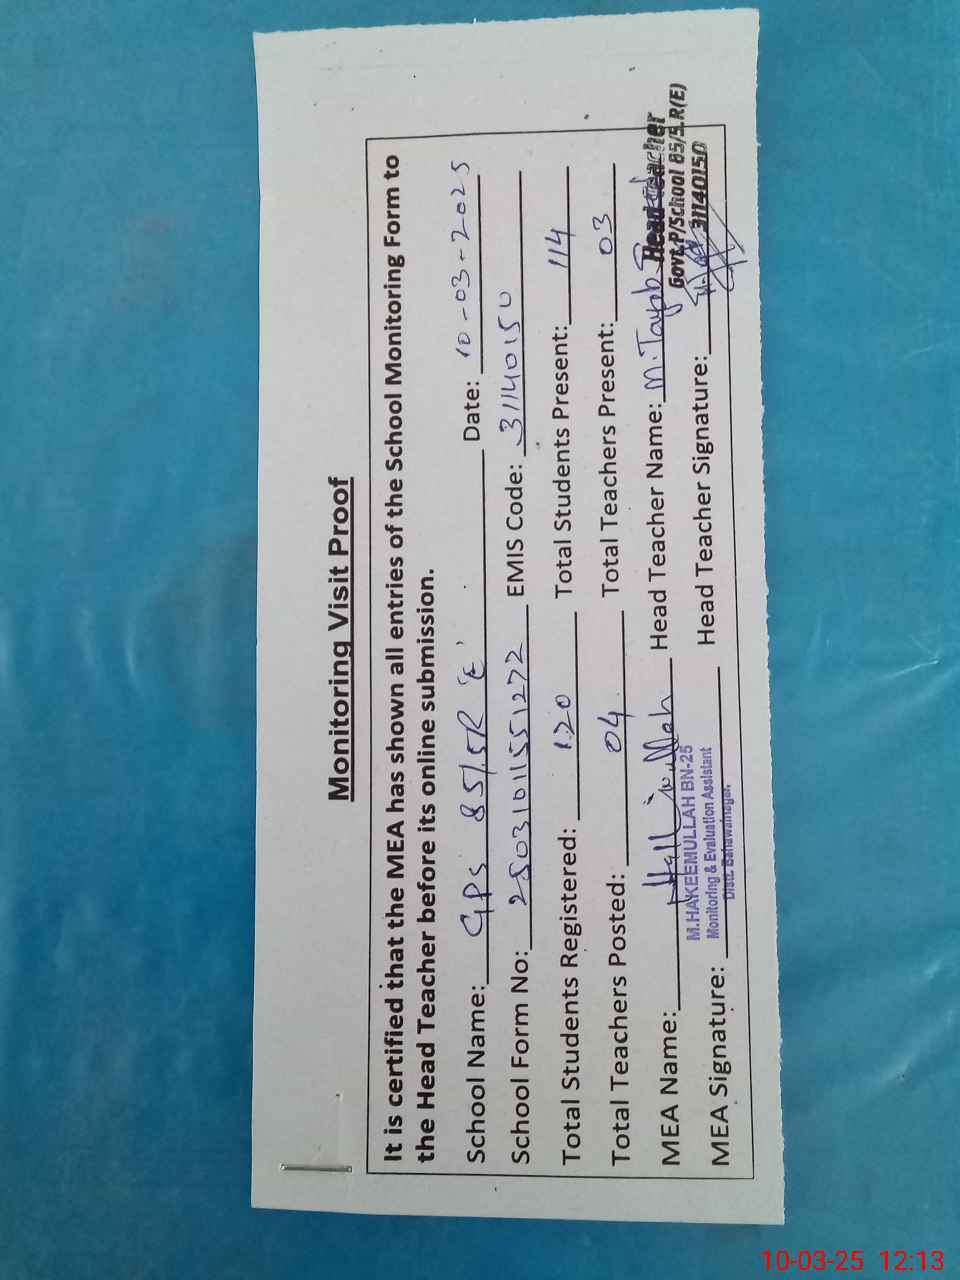 Monitoring Visit Proof
It is certified that the MEA has shown all entries of the School Monitoring Form to
the Head Teacher before its online submission.
School Name: GPS 85/5R 'E' Date: 10-03-2025
School Form No: 2503101151272 EMIS Code: 31140150
Total Students Registered: 120 Total Students Present: 114
Total Teachers Posted: 04 Total Teachers Present: 03
MEA Name: Head Teacher Name: M. Tayyab
Head Teacher
Govt.P/School 85/5.R(E)
31140150
M.HAKEEMULLAH BN-25
Monitoring & Evaluation Assistant
Distt. Bahawalnagar.
MEA Signature: Head Teacher Signature:
10-03-25 12:13